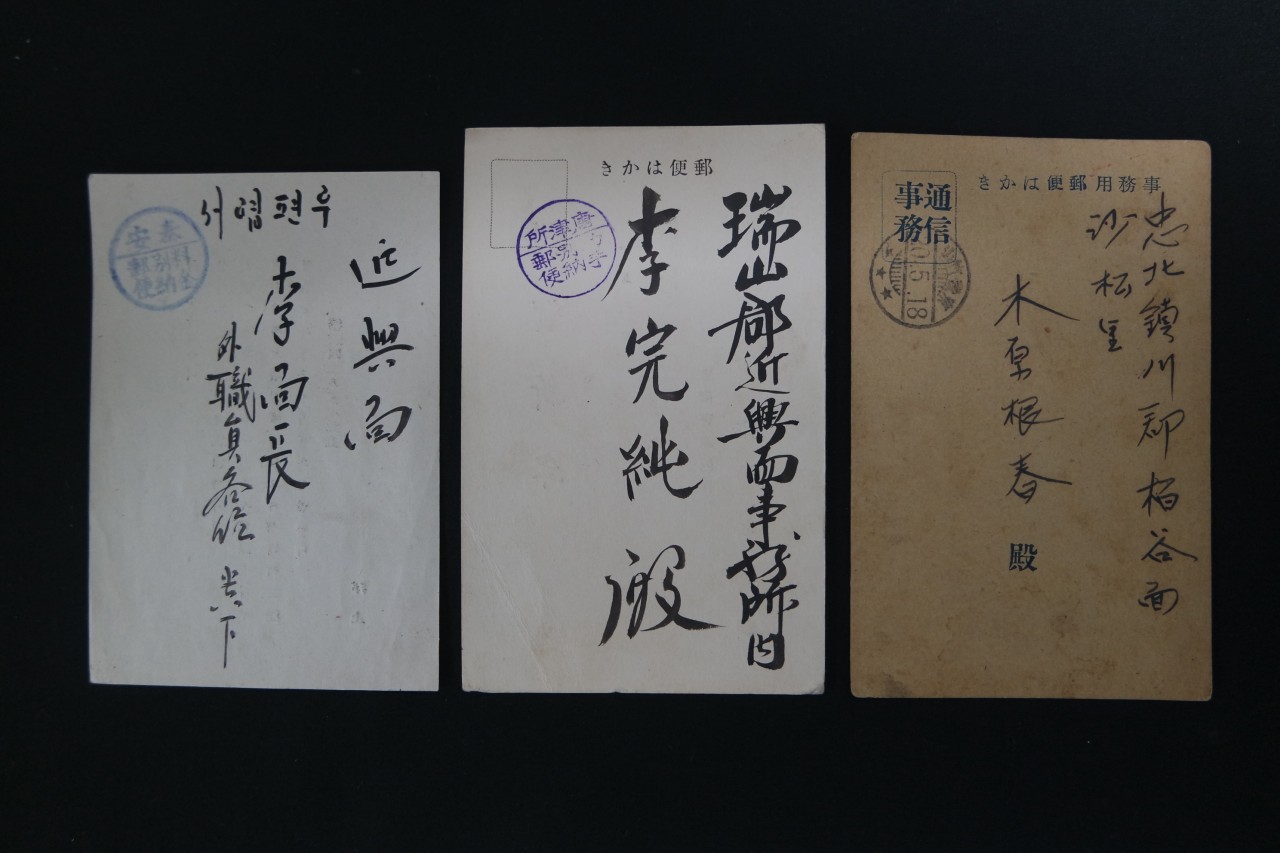 서엽편우
泰安
料金
別納
郵便
近興面
李面長
外職員各位 貴下
郵便はかき
唐津所
別納
郵便
瑞山郡近興面事務所内
李完純殿
事務用郵便はかき
通信
事務
5.18
忠北鎮川郡栢谷面
沙松里
木原根春 殿